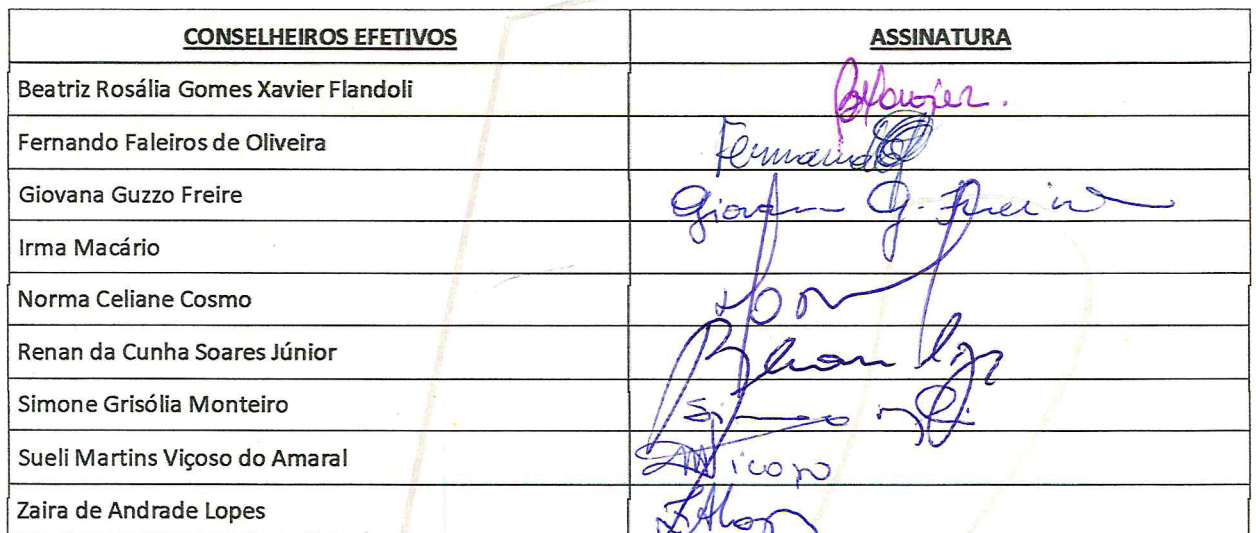 CONSELHEIROS EFETIVOS ASSINATURA
Beatriz Rosália Gomes Xavier Flandoli BXavier.
Fernando Faleiros de Oliveira Fernando
Giovana Guzzo Freire Giovana G. Freire
Irma Macário
Norma Celiane Cosmo
Renan da Cunha Soares Júnior Renan
Simone Grisólia Monteiro
Sueli Martins Viçoso do Amaral
Zaira de Andrade Lopes